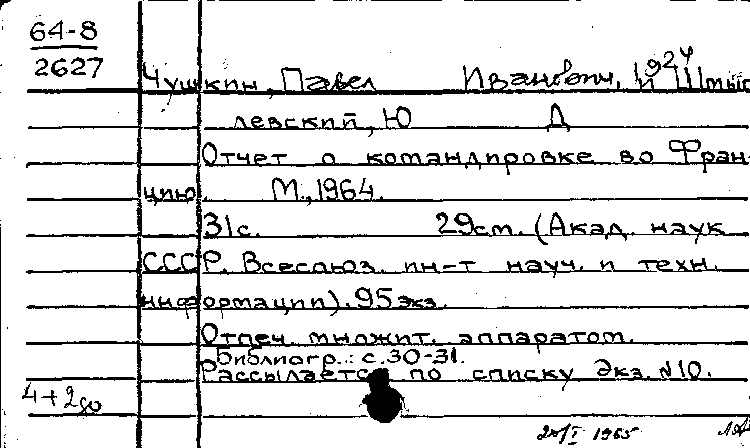 64-8
2627
1924
Чушкин, Павел Иванович, и Шмыг
левский, Ю Д
Отчет о командировке во Фран-
цию. М., 1964.
31с. 29см. (Акад. наук
СССР. Всесоюз. ин-т науч. и техн.
информации). 95 экз.
Отпеч. множит. аппаратом.
Библиогр.: с. 30-31.
Рассылается по списку Экз. №10.
4+2
1965